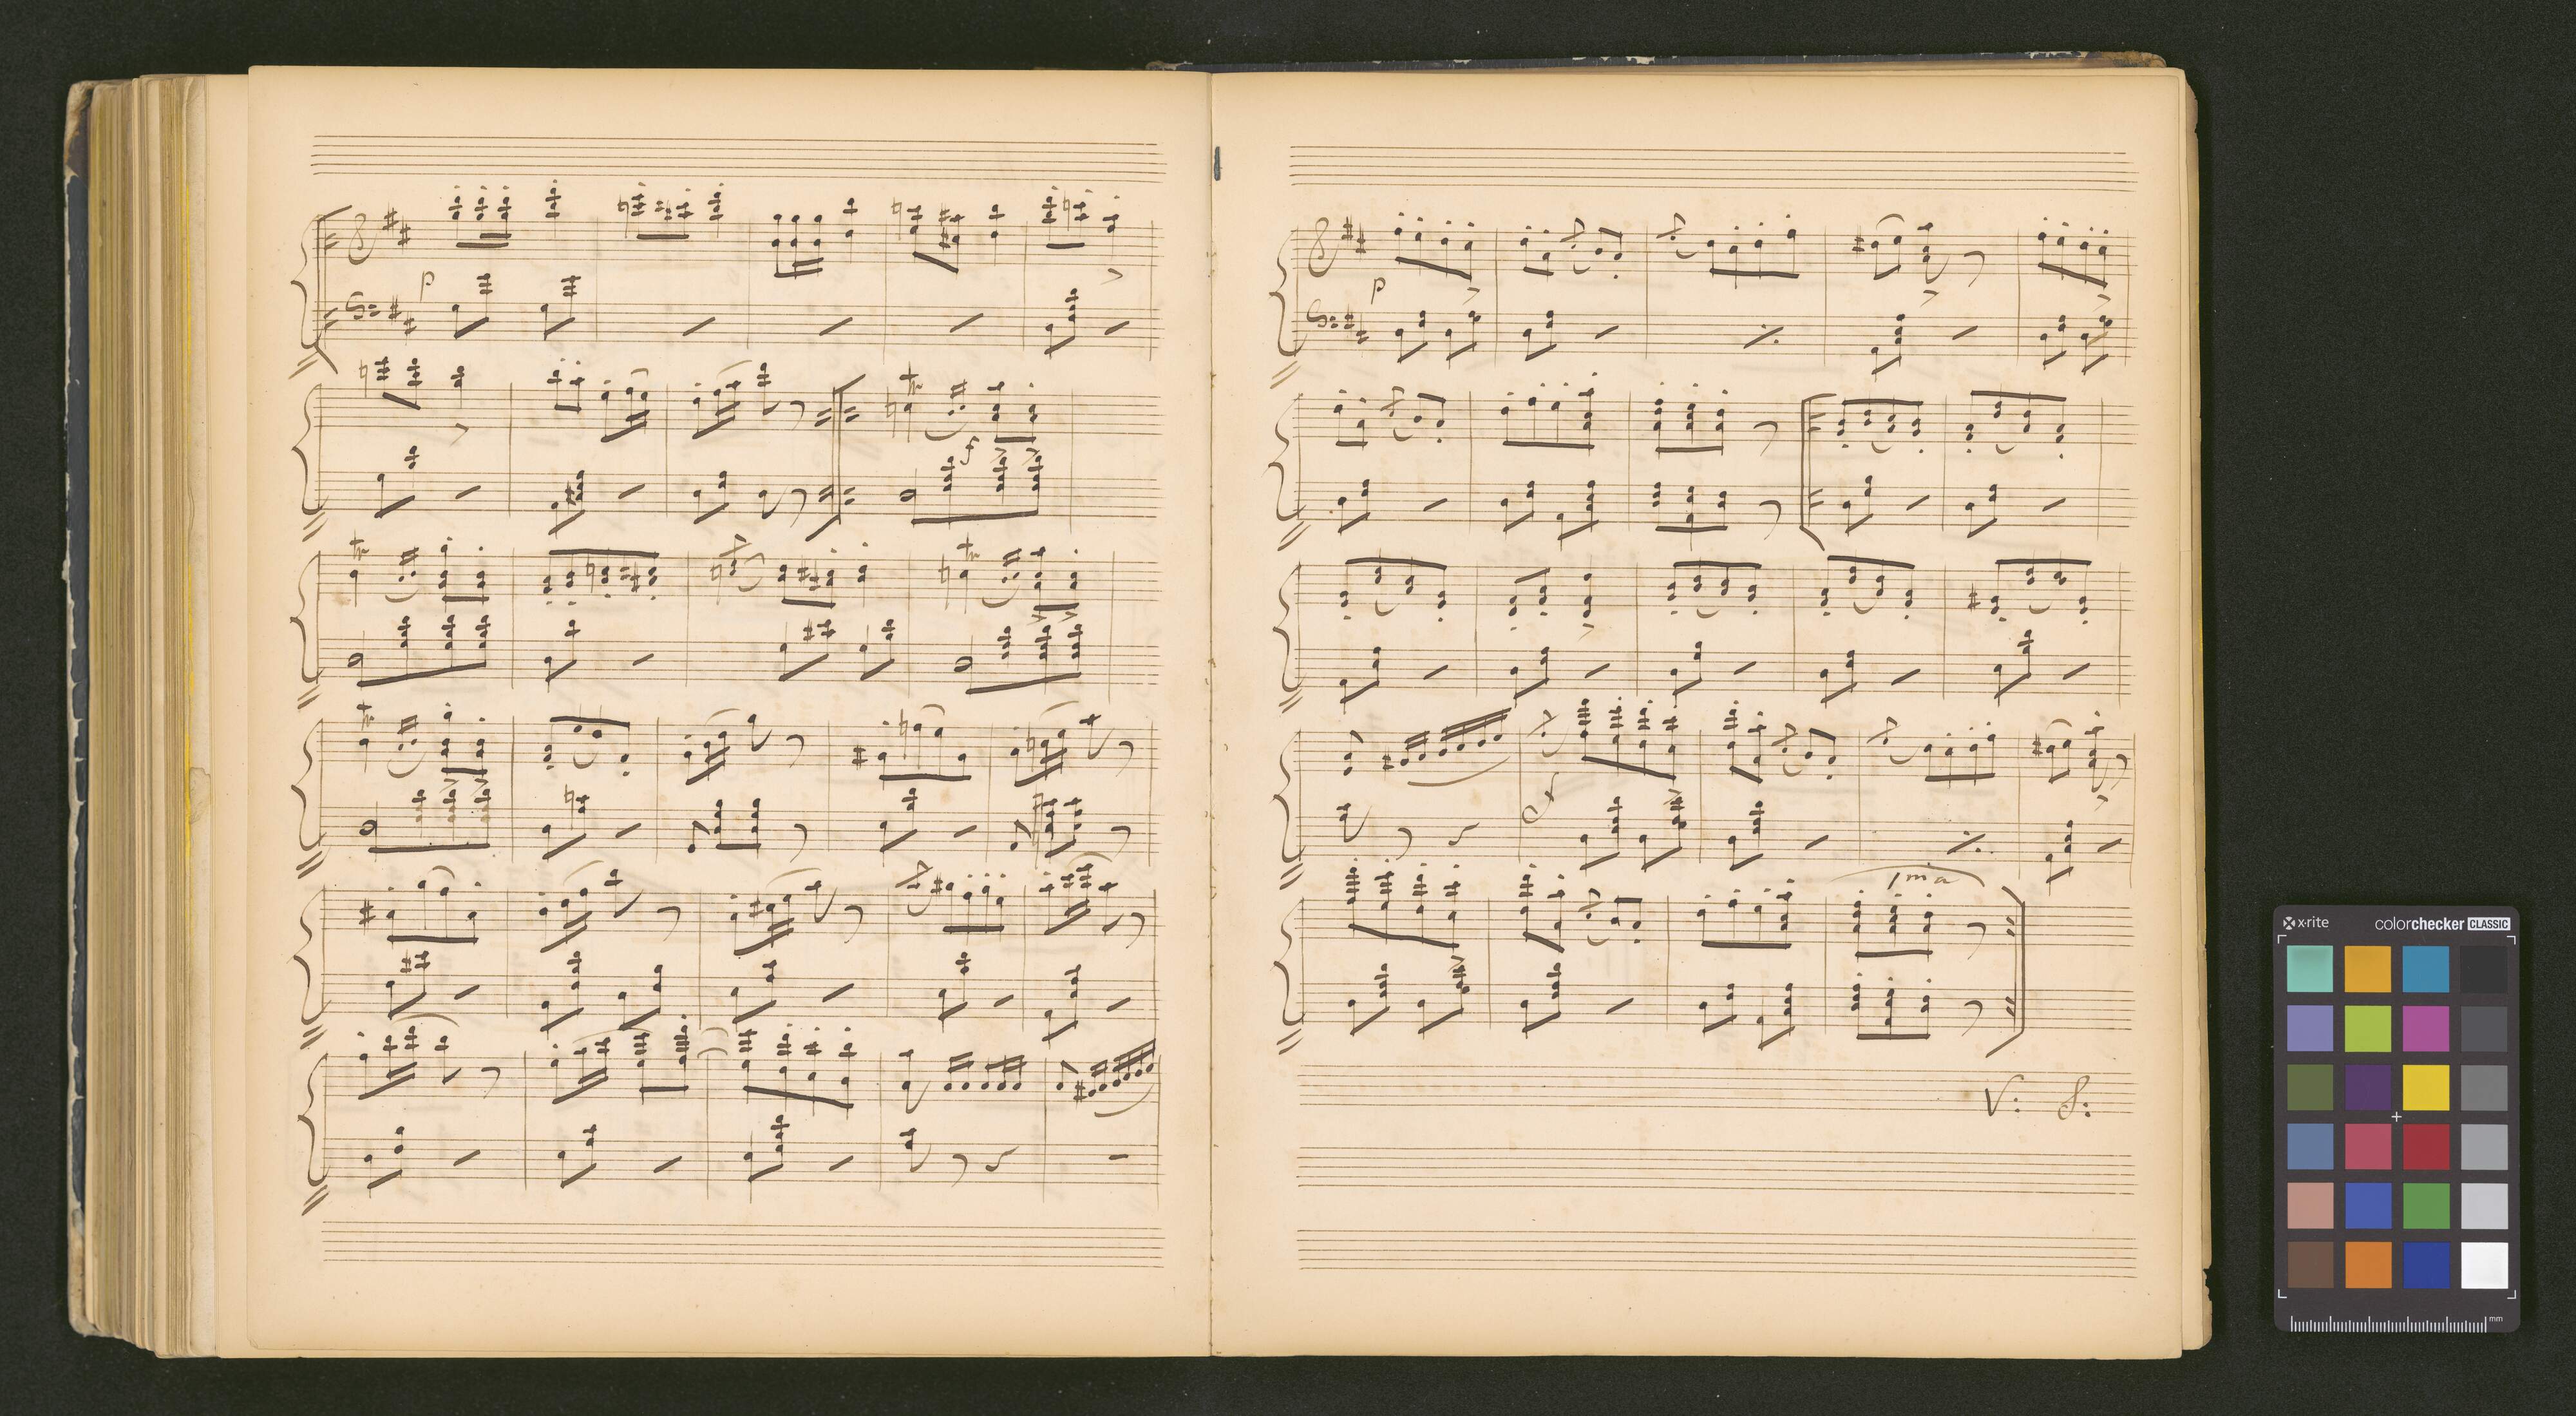 p
f
p
f
1ma
V: S:
x-rite colorchecker CLASSIC
mm